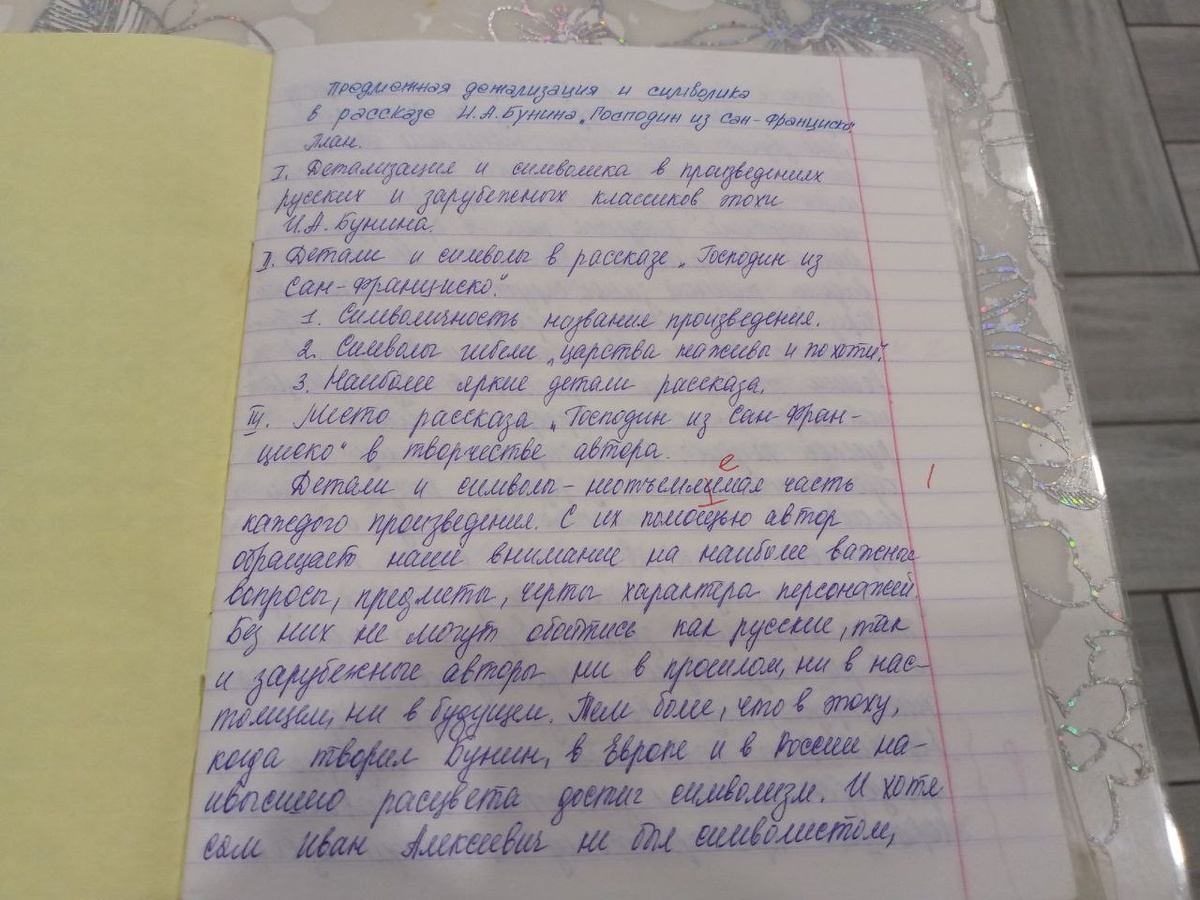 Предметная детализация и символика
в рассказе И.А.Бунина „Господин из Сан-Франциско"
План.
I. Детализация и символика в произведениях
русских и зарубежных классиков эпохи
И.А.Бунина.
II. Детали и символы в рассказе „Господин из
Сан-Франциско".
1. Символичность названия произведения.
2. Символы гибели „царства наживы и похоти".
3. Наиболее яркие детали рассказа.
III. Место рассказа „Господин из Сан-Фран-
циско" в творчестве автора.
е
Детали и символы – неотъемлимая часть
каждого произведения. С их помощью автор
обращает наше внимание на наиболее важные
вопросы, предметы, черты характера персонажей.
Без них не могут обойтись как русские, так
и зарубежные авторы ни в прошлом, ни в нас-
тоящем, ни в будущем. Тем более, что в эпоху,
когда творил Бунин, в Европе и в России на-
ивысшего расцвета достиг символизм. И хотя
сам Иван Алексеевич не был символистом,